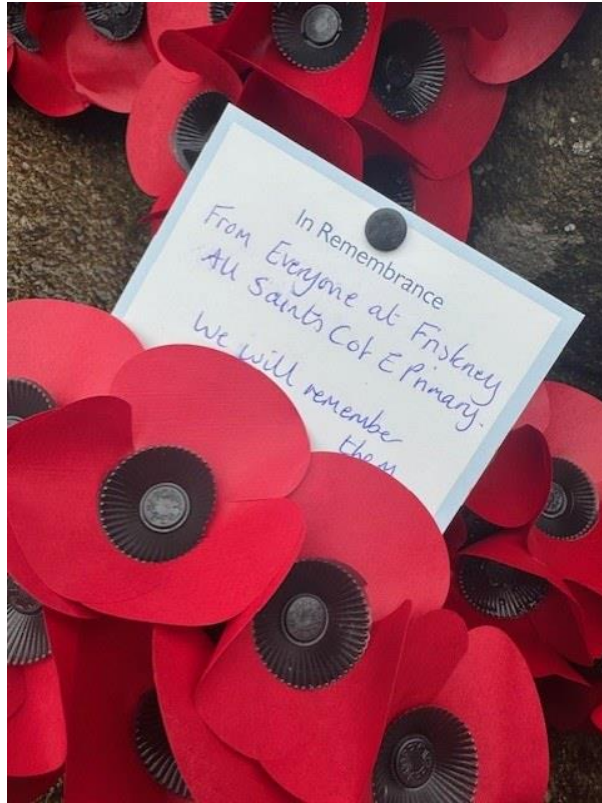 In Remembrance
From Everyone at Friskney
All Saints CofE Primary.
We will remember
them